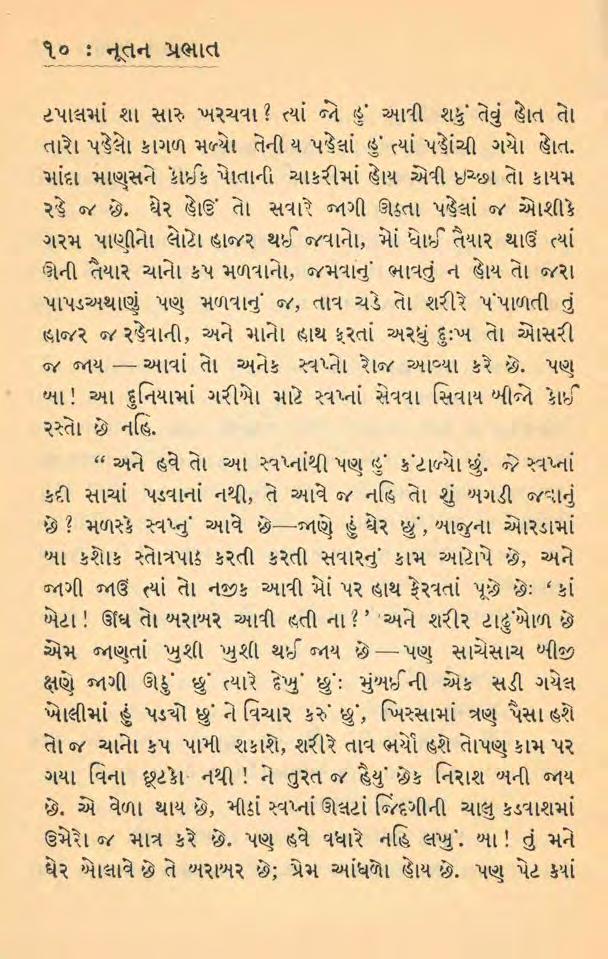 ૧૦ : નૂતન પ્રભાત
ટપાલમાં શા સારુ ખરચવા? ત્યાં જો હું આવી શકું તેવું હોત તો
તારો પહેલો કાગળ મળ્યો તેની ય પહેલાં હું ત્યાં પહોંચી ગયો હોત.
માંદા માણસને કોઈક પોતાની ચાકરીમાં હોય એવી ઇચ્છા તો કાયમ
રહે જ છે. ઘેર હોઉં તો સવારે જાગી ઊઠતા પહેલાં જ ઓશીકે
ગરમ પાણીનો લોટો હાજર થઈ જવાનો, મોં ધોઈ તૈયાર થાઉં ત્યાં
ઊની તૈયાર ચાનો કપ મળવાનો, જમવાનું ભાવતું ન હોય તો જરા
પાપડઅથાણું પણ મળવાનું જ, તાવ ચડે તો શરીરે પંપાળતી તું
હાજર જ રહેવાની, અને માનો હાથ ફરતાં અરધું દુઃખ તો ઓસરી
જ જાય — આવાં તો અનેક સ્વપ્નો રોજ આવ્યા કરે છે. પણ
બા! આ દુનિયામાં ગરીબો માટે સ્વપ્નાં સેવવા સિવાય બીજો કોઈ
રસ્તો છે નહિ.
“ અને હવે તો આ સ્વપ્નાંથી પણ હું કંટાળ્યો છું. જે સ્વપ્નાં
કદી સાચાં પડવાનાં નથી, તે આવે જ નહિ તો શું બગડી જવાનું
છે? મળસ્કે સ્વપ્નું આવે છે—જાણે હું ઘેર છું, બાજુના ઓરડામાં
બા કશોક સ્તોત્રપાઠ કરતી કરતી સવારનું કામ આટોપે છે, અને
જાગી જાઉં ત્યાં તો નજીક આવી મોં પર હાથ ફેરવતાં પૂછે છેઃ ‘ કાં
બેટા! ઊંઘ તો બરાબર આવી હતી ના?’ અને શરીર ટાઢુંબોળ છે
એમ જાણતાં ખુશી ખુશી થઈ જાય છે — પણ સાચેસાચ બીજી
ક્ષણે જાગી ઊઠું છું ત્યારે દેખું છુંઃ મુંબઈની એક સડી ગયેલ
ખોલીમાં હું પડ્યો છું ને વિચાર કરું છું, ખિસ્સામાં ત્રણ પૈસા હશે
તો જ ચાનો કપ પામી શકાશે, શરીરે તાવ ભર્યો હશે તોપણ કામ પર
ગયા વિના છૂટકો નથી! ને તુરત જ હૈયું છેક નિરાશ બની જાય
છે. એ વેળા થાય છે, મીઠાં સ્વપ્નાં ઊલટાં જિંદગીની ચાલુ કડવાશમાં
ઉમેરો જ માત્ર કરે છે. પણ હવે વધારે નહિ લખું. બા! તું મને
ઘેર બોલાવે છે તે બરાબર છે; પ્રેમ આંધળો હોય છે. પણ પેટ કયાં